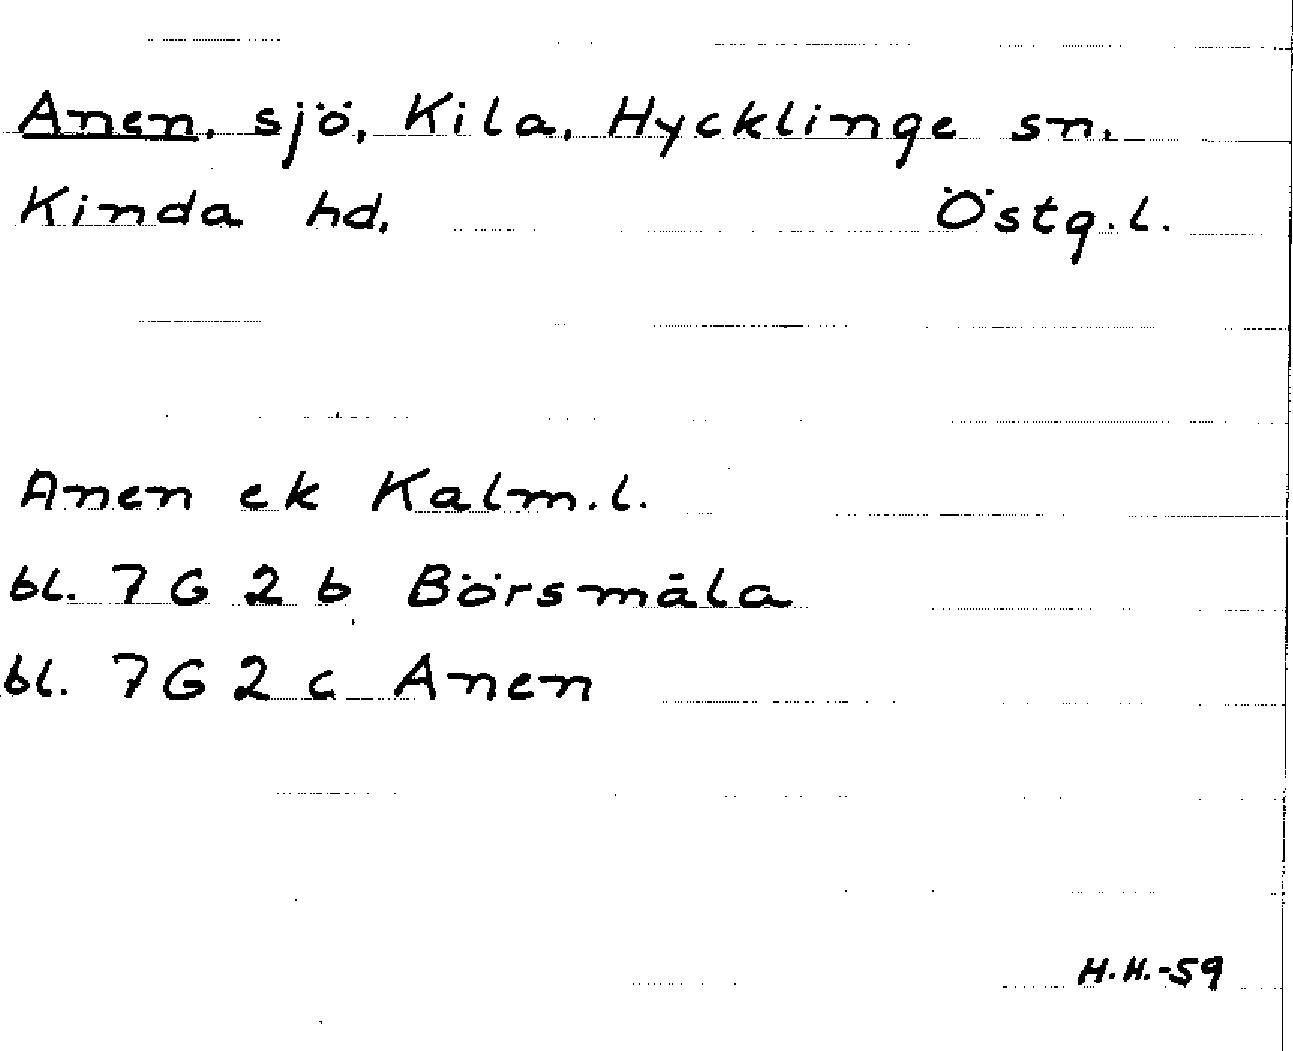 Anen, sjö, Kila, Hycklinge sn.
Kinda hd, Östg.l.
Anen ek Kalm.l.
bl. 7 G 2 b Börsmåla
bl. 7 G 2 c Anen
H.H.-59